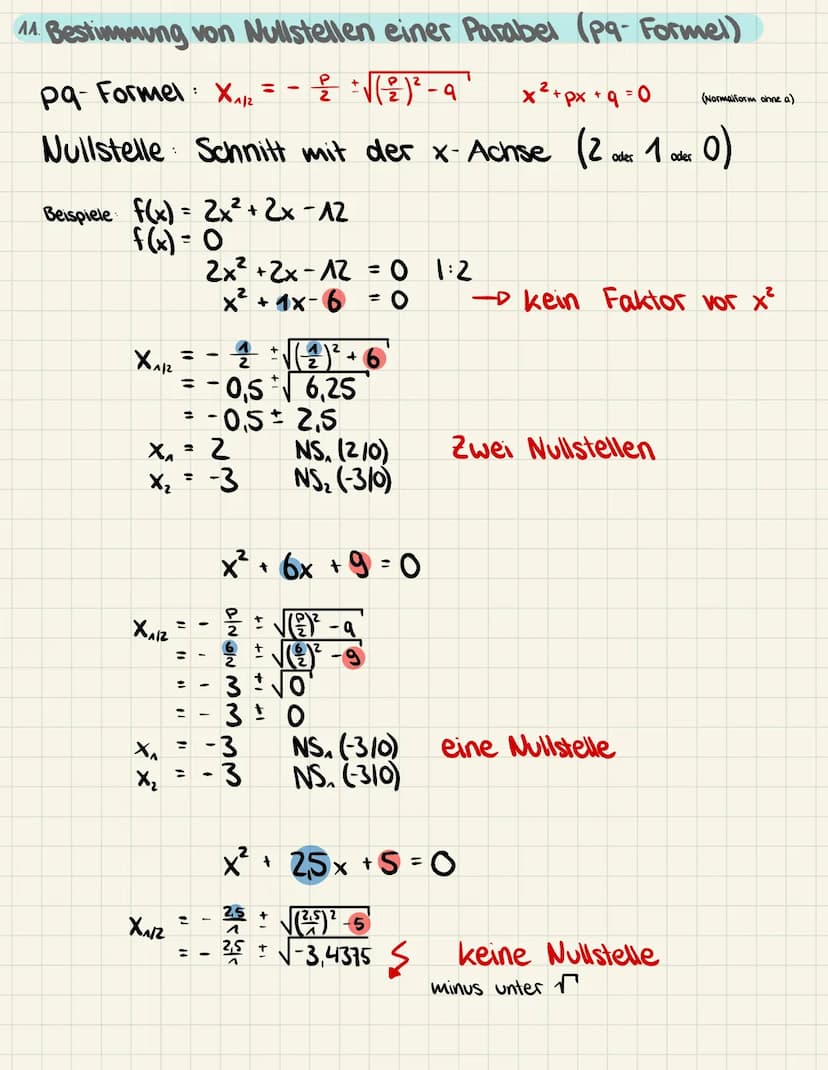 11. Bestimmung von Nullstellen einer Parabel (pq-Formel)
pq-Formel: X₁/₂ = - p/2 ± √((p/2)² - q) x² + px + q = 0 (Normalform ohne a)
Nullstelle: Schnitt mit der x-Achse (2 oder 1 oder 0)
Beispiele: f(x) = 2x² + 2x - 12
f(x) = 0
2x² + 2x - 12 = 0 |:2
x² + 1x - 6 = 0 → kein Faktor vor x²
X₁/₂ = - 1/2 ± √((1/2)² + 6)
= - 0,5 ± √6,25
= - 0,5 ± 2,5
X₁ = 2 NS₁ (2|0) Zwei Nullstellen
X₂ = -3 NS₂ (-3|0)
x² + 6x + 9 = 0
X₁/₂ = - p/2 ± √((p/2)² - q)
= - 6/2 ± √((6/2)² - 9)
= - 3 ± √0
= - 3 ± 0
X₁ = -3 NS₁ (-3|0) eine Nullstelle
X₂ = -3 NS₁ (-3|0)
x² + 2,5x + 5 = 0
X₁/₂ = - 2,5/1 ± √((2,5/1)² - 5)
= - 2,5/1 ± √-3,4375 keine Nullstelle
minus unter √